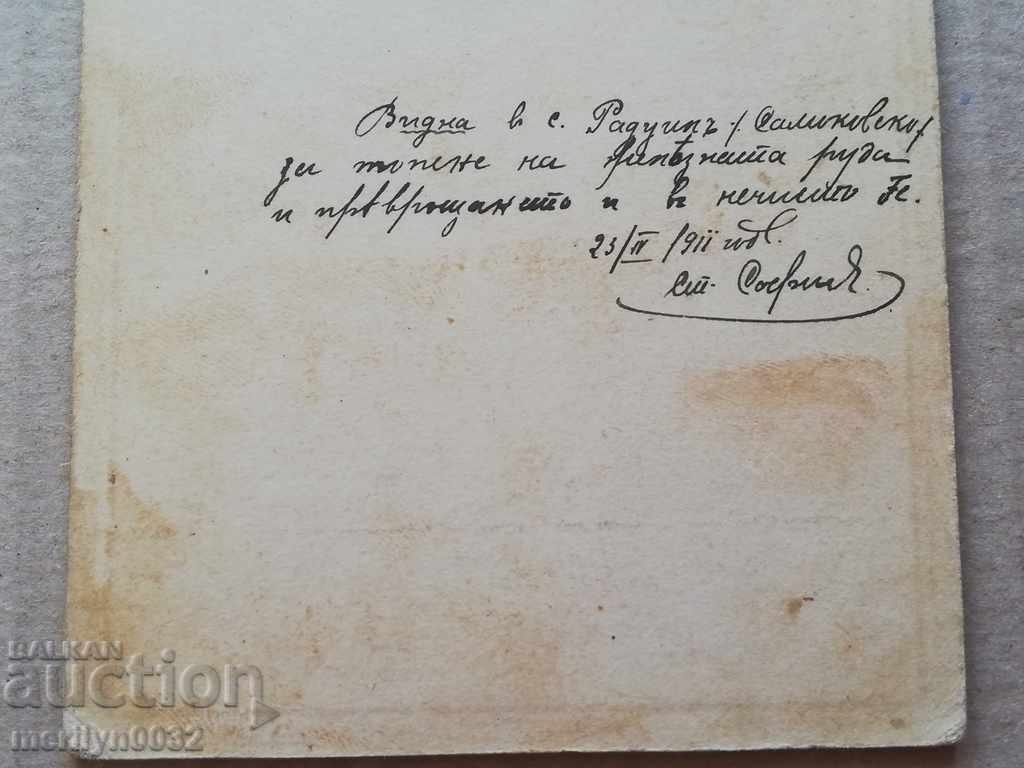 Видна в с. Радуилъ /Самоковско/
за топене на железната руда
и превръщането и въ нечисто Fe.
23/IV/911 год.
Ст. Софрий
BALKAN
auction
merilyn0032